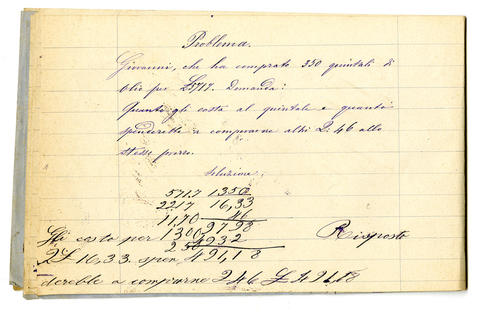 Problema.
Giovanni, che ha comprato 350 quintali di
olio per £5717. Domanda:
Quanto gli costa al quintale e quanto
spenderebbe a comprarne altri 2. 46 allo
stesso prezzo.
Soluzione.
5717 1350
2217 16,33
1170 46
1300 97 98
250 4932
491,18
Risposta
Gli costa per
2£ 16,33. spen
derebbe a comprarne 2 46 £ 491,18